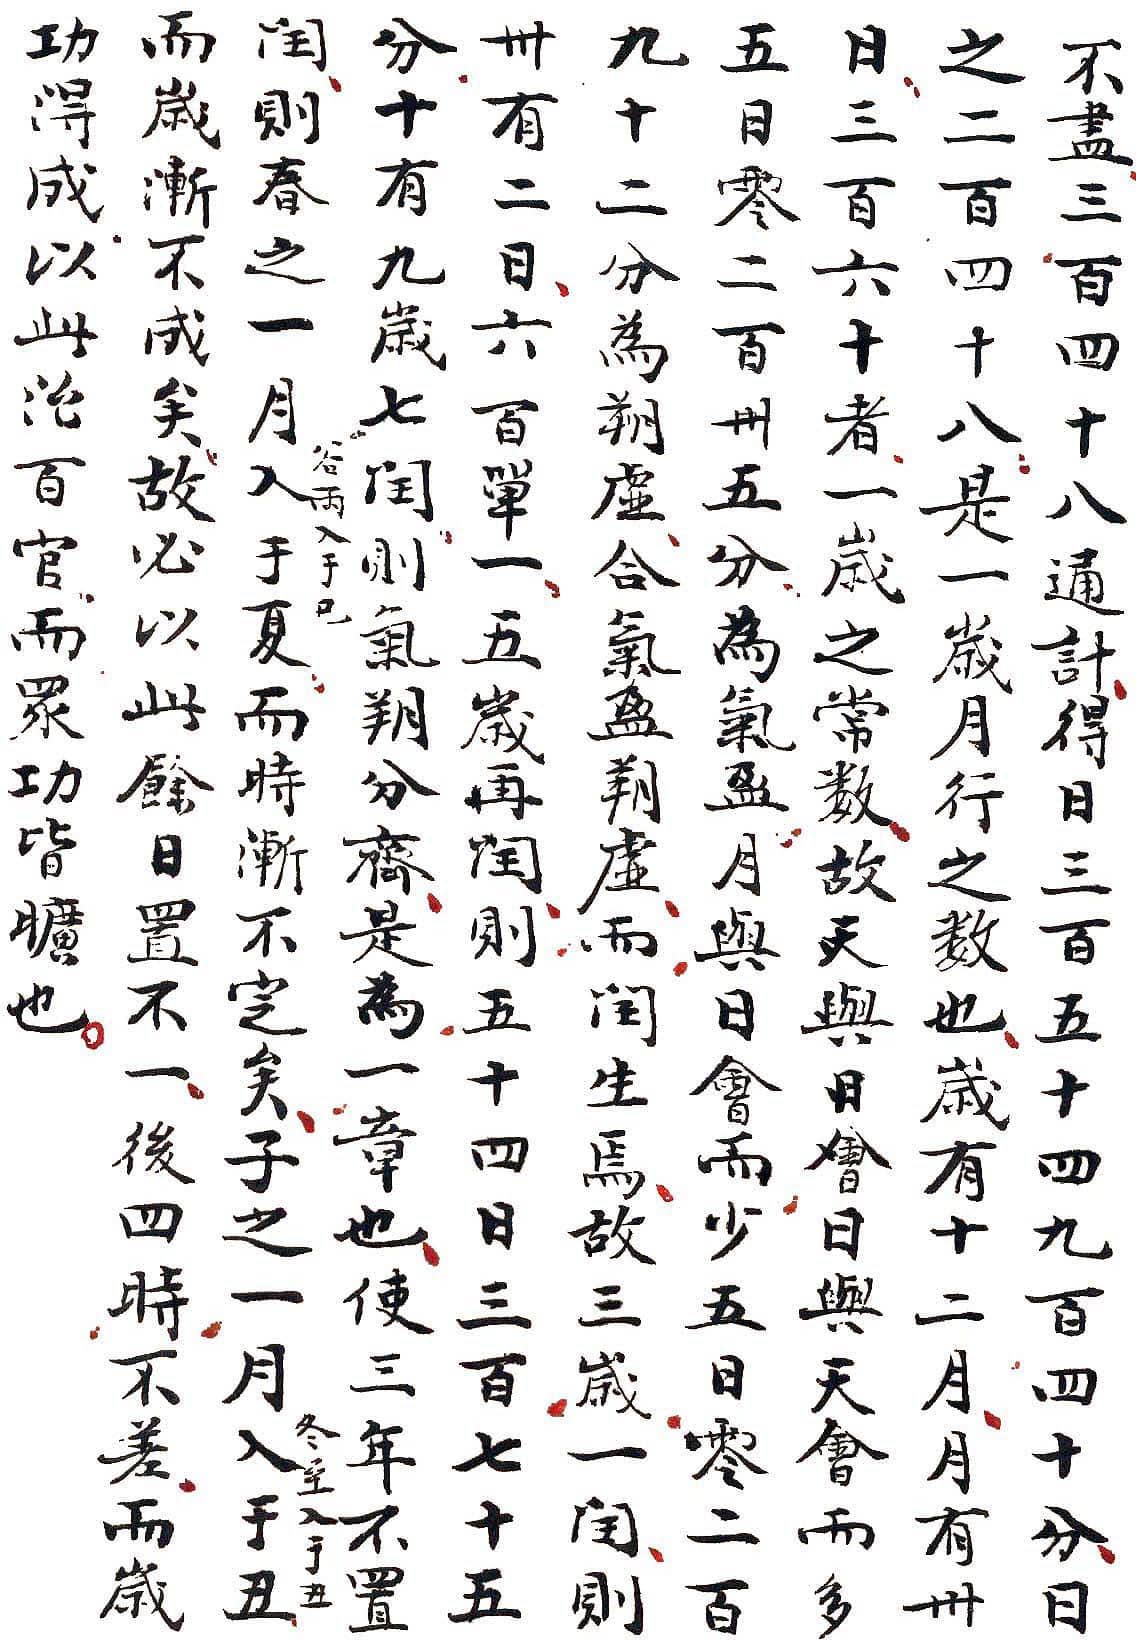 不盡三百四十八通計得日三百五十四九百四十分日
之二百四十八是一歲月行之數也歲有十二月月有卅
日三百六十者一歲之常数故天與日會日與天會而多
五日零二百卅五分為氣盈月與日會而少五日零二百
九十二分為朔虛合氣盈朔虛而閏生焉故三歲一閏則
卅有二日六百單一五歲再閏則五十四日三百七十五
分十有九歲七閏則氣朔分齊是為一章也使三年不置
閏則春之一月入于夏而時漸不定矣子之一月入于丑
谷雨入于巳
冬至入于丑
而歲漸不成矣故必以此餘日置不一後四時不差而歲
功得成以此治百官而眾功皆曠也